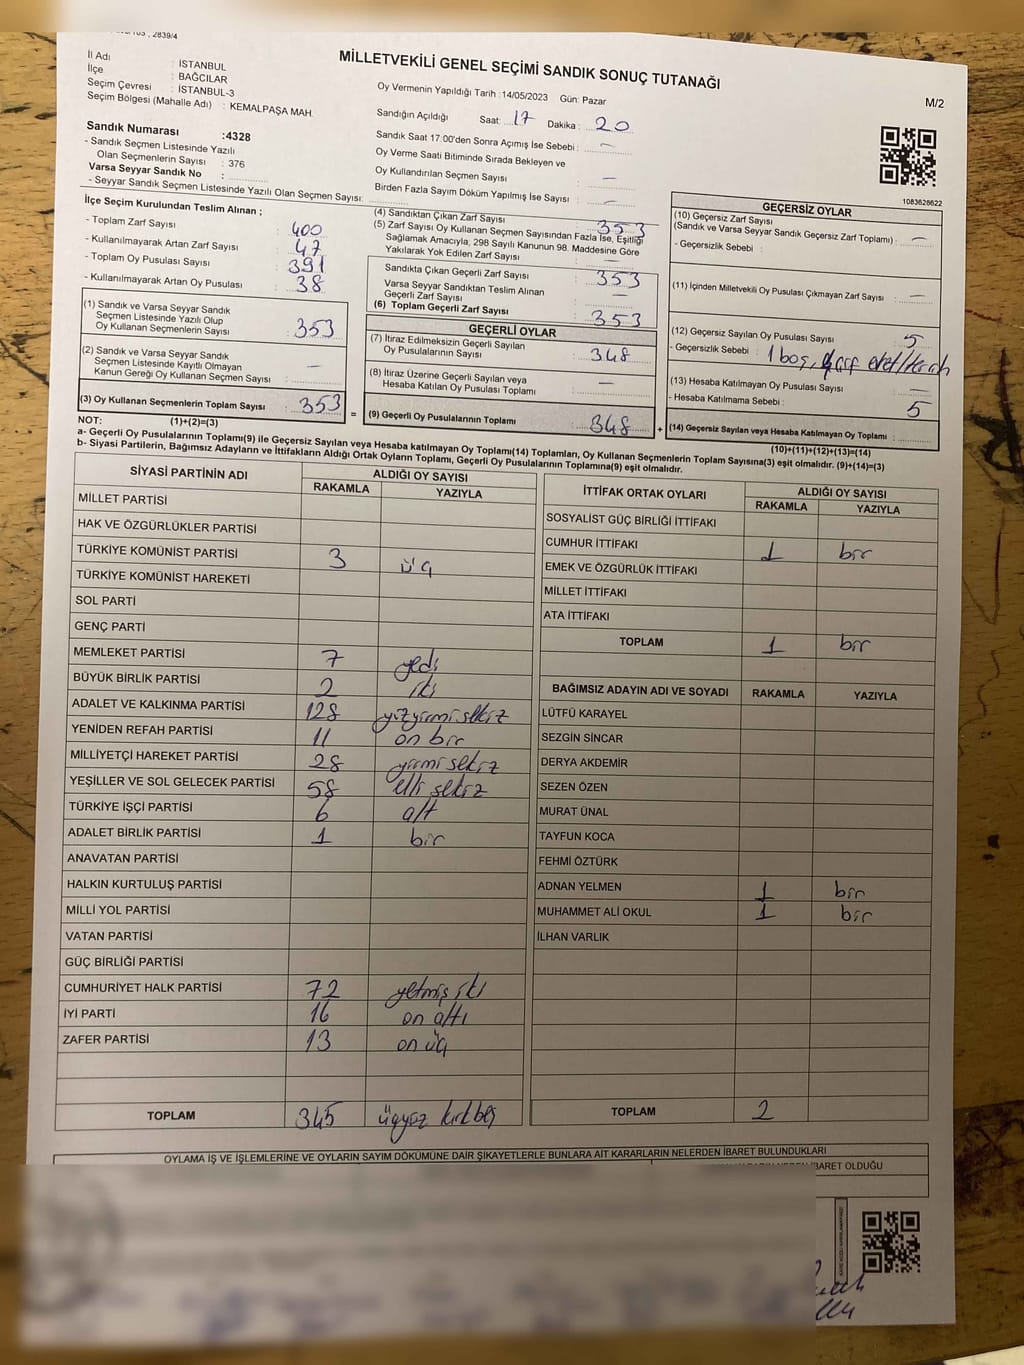 2839/4
MİLLETVEKİLİ GENEL SEÇİMİ SANDIK SONUÇ TUTANAĞI
M/2
İl Adı : İSTANBUL
İlçe : BAĞCILAR
Seçim Çevresi : İSTANBUL-3
Seçim Bölgesi (Mahalle Adı) : KEMALPAŞA MAH.
Sandık Numarası :4328
- Sandık Seçmen Listesinde Yazılı
Olan Seçmenlerin Sayısı : 376
Varsa Seyyar Sandık No :
- Seyyar Sandık Seçmen Listesinde Yazılı Olan Seçmen Sayısı:
Oy Vermenin Yapıldığı Tarih :14/05/2023 Gün: Pazar
Sandığın Açıldığı Saat: 17 Dakika: 20
Sandık Saat 17:00'den Sonra Açımış İse Sebebi : -
Oy Verme Saati Bitiminde Sırada Bekleyen ve
Oy Kullandırılan Seçmen Sayısı : -
Birden Fazla Sayım Döküm Yapılmış İse Sayısı : -
1083628622
İlçe Seçim Kurulundan Teslim Alınan ;
- Toplam Zarf Sayısı : 400
- Kullanılmayarak Artan Zarf Sayısı : 47
- Toplam Oy Pusulası Sayısı : 391
- Kullanılmayarak Artan Oy Pusulası : 38
(1) Sandık ve Varsa Seyyar Sandık
Seçmen Listesinde Yazılı Olup
Oy Kullanan Seçmenlerin Sayısı : 353
(2) Sandık ve Varsa Seyyar Sandık
Seçmen Listesinde Kayıtlı Olmayan
Kanun Gereği Oy Kullanan Seçmen Sayısı : -
(3) Oy Kullanan Seçmenlerin Toplam Sayısı : 353
(1)+(2)=(3)
(4) Sandıktan Çıkan Zarf Sayısı : 353
(5) Zarf Sayısı Oy Kullanan Seçmen Sayısından Fazla İse, Eşitliği
Sağlamak Amacıyla; 298 Sayılı Kanunun 98. Maddesine Göre
Yakılarak Yok Edilen Zarf Sayısı : -
Sandıkta Çıkan Geçerli Zarf Sayısı : 353
Varsa Seyyar Sandıktan Teslim Alınan
Geçerli Zarf Sayısı : -
(6) Toplam Geçerli Zarf Sayısı : 353
GEÇERLİ OYLAR
(7) İtiraz Edilmeksizin Geçerli Sayılan
Oy Pusulalarının Sayısı : 348
(8) İtiraz Üzerine Geçerli Sayılan veya
Hesaba Katılan Oy Pusulası Toplamı : -
= (9) Geçerli Oy Pusulalarının Toplamı : 348 +
GEÇERSİZ OYLAR
(10) Geçersiz Zarf Sayısı
(Sandık ve Varsa Seyyar Sandık Geçersiz Zarf Toplamı) : -
- Geçersizlik Sebebi :
(11) İçinden Milletvekili Oy Pusulası Çıkmayan Zarf Sayısı : -
(12) Geçersiz Sayılan Oy Pusulası Sayısı : 5
- Geçersizlik Sebebi : 1 boş,
(13) Hesaba Katılmayan Oy Pusulası Sayısı : -
- Hesaba Katılmama Sebebi :
(14) Geçersiz Sayılan veya Hesaba Katılmayan Oy Toplamı : 5
(10)+(11)+(12)+(13)=(14)
NOT:
a- Geçerli Oy Pusulalarının Toplamı(9) ile Geçersiz Sayılan veya Hesaba katılmayan Oy Toplamı(14) Toplamları, Oy Kullanan Seçmenlerin Toplam Sayısına(3) eşit olmalıdır. (9)+(14)=(3)
b- Siyasi Partilerin, Bağımsız Adayların ve İttifakların Aldığı Ortak Oyların Toplamı, Geçerli Oy Pusulalarının Toplamına(9) eşit olmalıdır.
SİYASİ PARTİNİN ADI ALDIĞI OY SAYISI
RAKAMLA YAZIYLA
MİLLET PARTİSİ
HAK VE ÖZGÜRLÜKLER PARTİSİ
TÜRKİYE KOMÜNİST PARTİSİ 3 üç
TÜRKİYE KOMÜNİST HAREKETİ
SOL PARTİ
GENÇ PARTİ
MEMLEKET PARTİSİ 7 yedi
BÜYÜK BİRLİK PARTİSİ 2 iki
ADALET VE KALKINMA PARTİSİ 128 yüzyirmi sekiz
YENİDEN REFAH PARTİSİ 11 on bir
MİLLİYETÇİ HAREKET PARTİSİ 28 yirmi sekiz
YEŞİLLER VE SOL GELECEK PARTİSİ 58 elli sekiz
TÜRKİYE İŞÇİ PARTİSİ 6 altı
ADALET BİRLİK PARTİSİ 1 bir
ANAVATAN PARTİSİ
HALKIN KURTULUŞ PARTİSİ
MİLLİ YOL PARTİSİ
VATAN PARTİSİ
GÜÇ BİRLİĞİ PARTİSİ
CUMHURİYET HALK PARTİSİ 72 yetmiş iki
İYİ PARTİ 16 on altı
ZAFER PARTİSİ 13 on üç
TOPLAM 345 üçyüz kırkbeş
İTTİFAK ORTAK OYLARI ALDIĞI OY SAYISI
RAKAMLA YAZIYLA
SOSYALİST GÜÇ BİRLİĞİ İTTİFAKI
CUMHUR İTTİFAKI 1 bir
EMEK VE ÖZGÜRLÜK İTTİFAKI
MİLLET İTTİFAKI
ATA İTTİFAKI
TOPLAM 1 bir
BAĞIMSIZ ADAYIN ADI VE SOYADI RAKAMLA YAZIYLA
LÜTFÜ KARAYEL
SEZGİN SİNCAR
DERYA AKDEMİR
SEZEN ÖZEN
MURAT ÜNAL
TAYFUN KOCA
FEHMİ ÖZTÜRK
ADNAN YELMEN 1 bir
MUHAMMET ALİ OKUL 1 bir
İLHAN VARLIK
TOPLAM 2
OYLAMA İŞ VE İŞLEMLERİNE VE OYLARIN SAYIM DÖKÜMÜNE DAİR ŞİKAYETLERLE BUNLARA AİT KARARLARIN NELERDEN İBARET BULUNDUKLARI
İBARET OLDUĞU